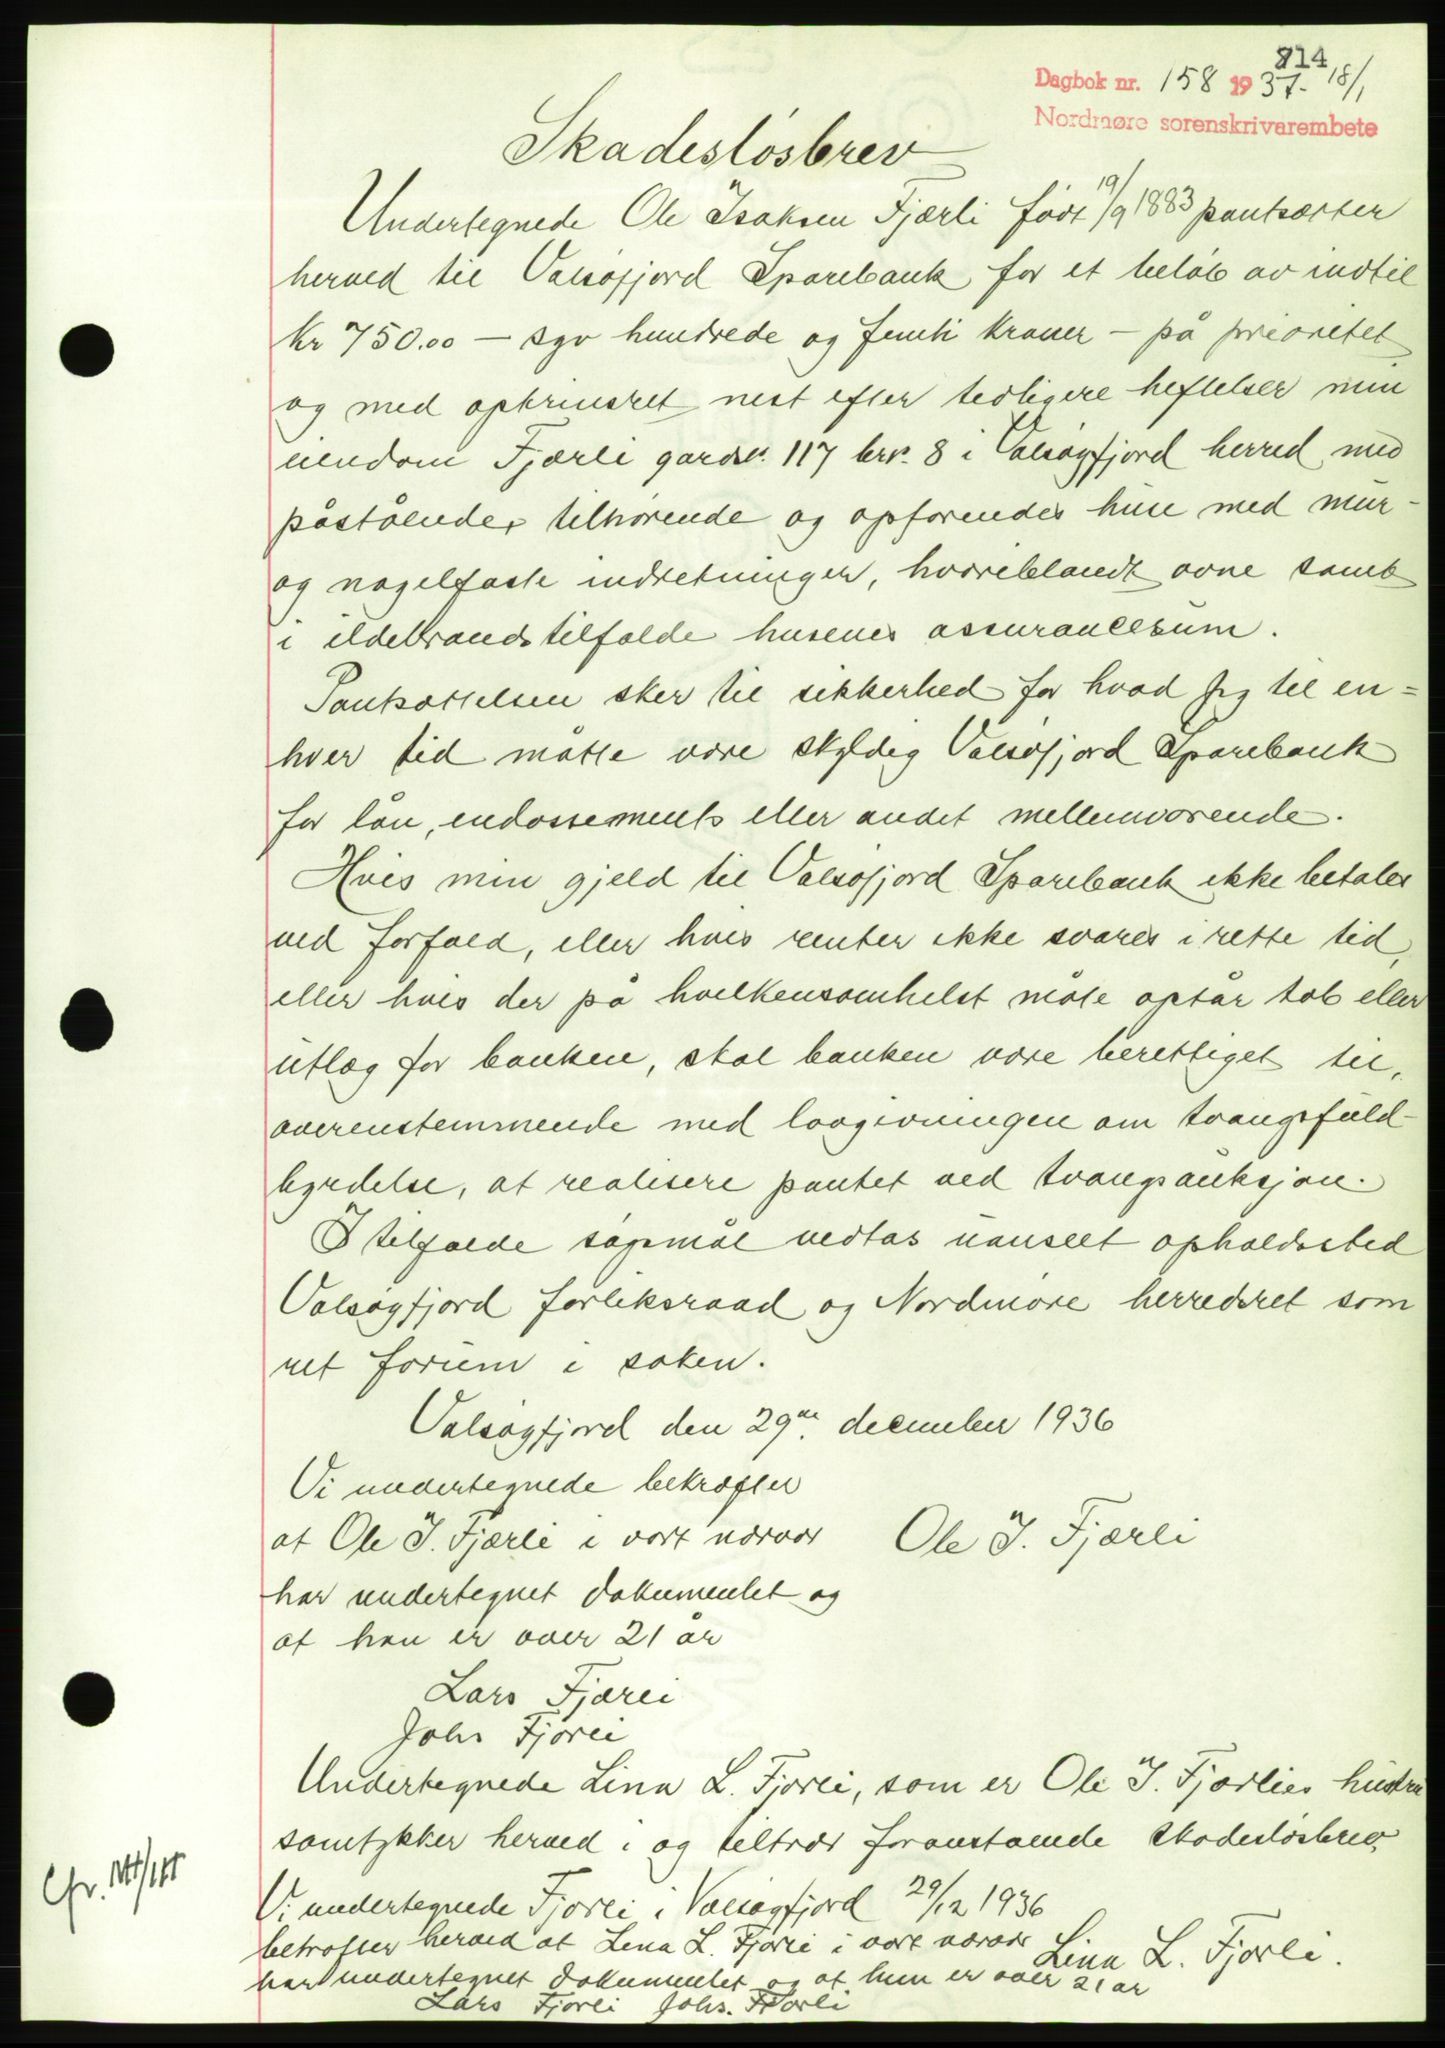 814
Dagbok nr. 158 1937. 18/1
Nordmøre sorenskrivarembete
Skadesløsbrev
Undertegnede Ole Isaksen Fjærli født 19/9 1883 pantsætter
herved til Valsøfjord Sparebank for et beløb av indtil
Kr 750.00 — syv hundrede og femti kroner — på prioritet
og med optrinsret nest efter tidligere heftelser min
eiendom Fjærli gardsnr. 117 brnr. 8 i Valsøyfjord herred med
påståendes tilhørende og opførendes huse med mur-
og nagelfaste indretninger, hvoriblandt ovne samt
i ildebrandstilfælde husenes assurancesum.
Pantsættelsen sker til sikkerhed for hvad jeg til en=
hver tid måtte være skyldig Valsøfjord Sparebank
for lån, endossements eller andet mellemværende.
Hvis min gjeld til Valsøfjord Sparebank ikke betales
ved forfald, eller hvis renter ikke svares i rette tid,
eller hvis der på hvilkensomhelst måte opstår tab eller
utlæg for banken, skal banken være berettiget til,
overenstemmende med lovgivningen om tvangsfuld-
byrdelse, at realisere pantet ved tvangsauksjon.
I tilfælde søgsmål vedtas uanseet opholdssted
Valsøyfjord forliksraad og Nordmøre herredsret som
ret forum i saken.
Valsøyfjord den 29de december 1936
Vi undertegnede bekræfter
at Ole I. Fjærli i vort nærvær Ole I. Fjærli
har undertegnet dokumentet og
at han er over 21 år
Lars Fjærli
Johs Fjærli
Undertegnede Lina L. Fjærli, som er Ole I. Fjærlies hustru
samtykker herved i og tiltrær foranstaende skadesløsbrev.
Cfr.
Vi undertegnede Fjærli i Valsøyfjord 29/12 1936
betræfter herved at Lina L. Fjærli i vort nærvær Lina L. Fjærli.
har undertegnet dokumentet og at hun er over 21 år
Lars Fjærli Johs. Fjærli